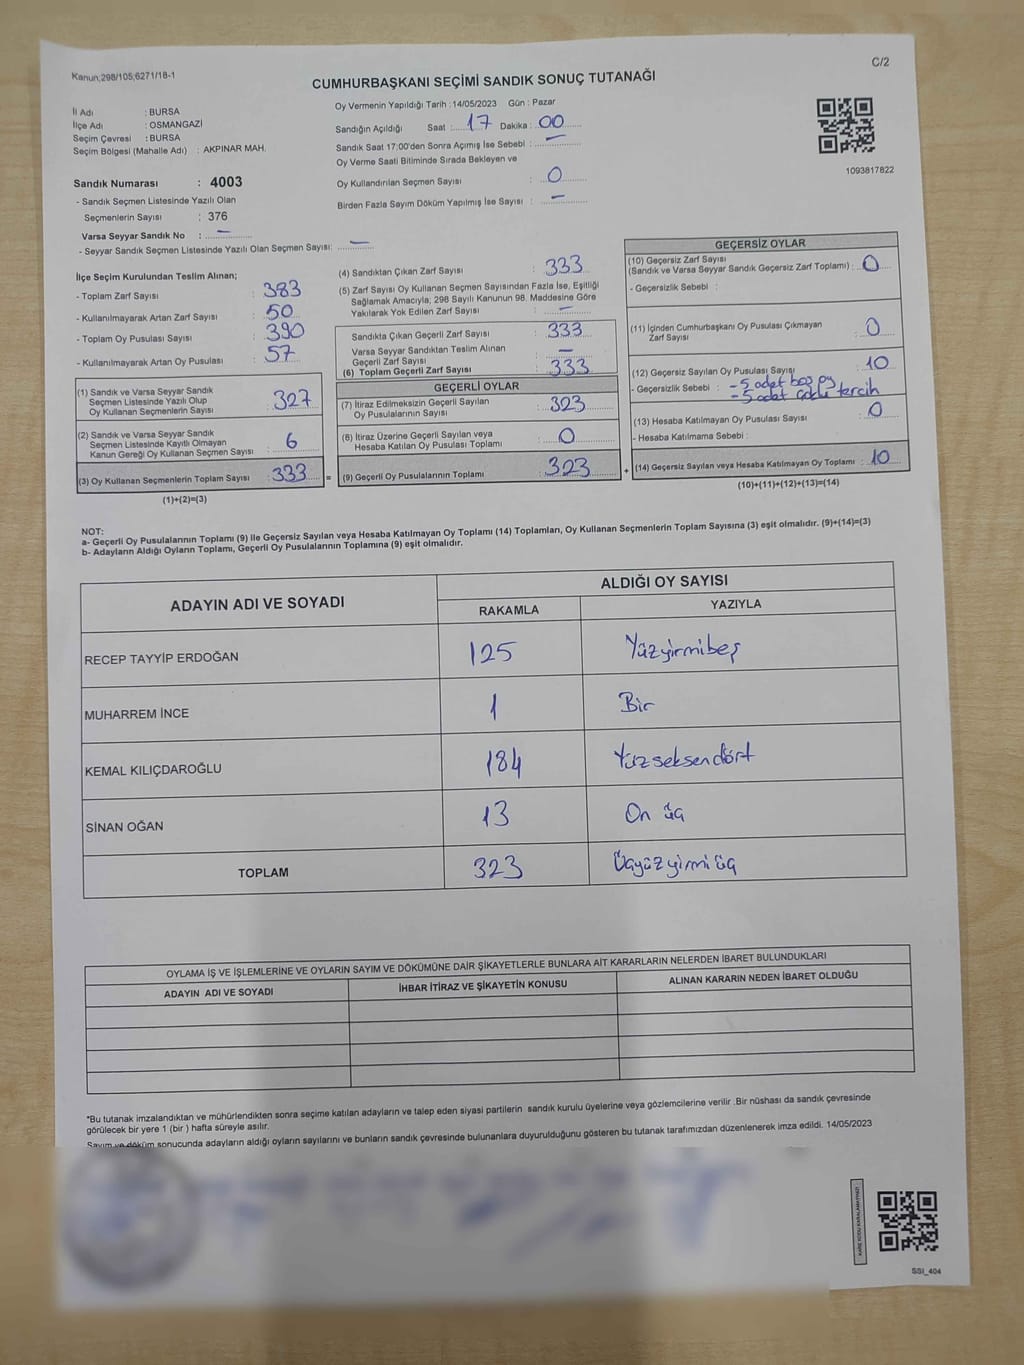 Kanun;298/105;6271/18-1
C/2
CUMHURBAŞKANI SEÇİMİ SANDIK SONUÇ TUTANAĞI
İl Adı : BURSA
İlçe Adı : OSMANGAZİ
Seçim Çevresi : BURSA
Seçim Bölgesi (Mahalle Adı) : AKPINAR MAH.
Oy Vermenin Yapıldığı Tarih : 14/05/2023 Gün : Pazar
Sandığın Açıldığı Saat : 17 Dakika : 00
Sandık Saat 17:00'den Sonra Açmış İse Sebebi : —
Oy Verme Saati Bitiminde Sırada Bekleyen ve
Oy Kullandırılan Seçmen Sayısı : 0
Birden Fazla Sayım Döküm Yapılmış İse Sayısı : —
1093817822
Sandık Numarası : 4003
- Sandık Seçmen Listesinde Yazılı Olan
Seçmenlerin Sayısı : 376
Varsa Seyyar Sandık No : —
- Seyyar Sandık Seçmen Listesinde Yazılı Olan Seçmen Sayısı: —
İlçe Seçim Kurulundan Teslim Alınan;
- Toplam Zarf Sayısı : 383
- Kullanılmayarak Artan Zarf Sayısı : 50
- Toplam Oy Pusulası Sayısı : 390
- Kullanılmayarak Artan Oy Pusulası : 57
(1) Sandık ve Varsa Seyyar Sandık
Seçmen Listesinde Yazılı Olup
Oy Kullanan Seçmenlerin Sayısı : 327
(2) Sandık ve Varsa Seyyar Sandık
Seçmen Listesinde Kayıtlı Olmayan
Kanun Gereği Oy Kullanan Seçmen Sayısı : 6
(3) Oy Kullanan Seçmenlerin Toplam Sayısı : 333
(1)+(2)=(3)
(4) Sandıktan Çıkan Zarf Sayısı : 333
(5) Zarf Sayısı Oy Kullanan Seçmen Sayısından Fazla İse, Eşitliği
Sağlamak Amacıyla; 298 Sayılı Kanunun 98. Maddesine Göre
Yakılarak Yok Edilen Zarf Sayısı : —
Sandıkta Çıkan Geçerli Zarf Sayısı : 333
Varsa Seyyar Sandıktan Teslim Alınan
Geçerli Zarf Sayısı : —
(6) Toplam Geçerli Zarf Sayısı : 333
GEÇERLİ OYLAR
(7) İtiraz Edilmeksizin Geçerli Sayılan
Oy Pusulasının Sayısı : 323
(8) İtiraz Üzerine Geçerli Sayılan veya
Hesaba Katılan Oy Pusulası Toplamı : 0
= (9) Geçerli Oy Pusulalarının Toplamı : 323
GEÇERSİZ OYLAR
(10) Geçersiz Zarf Sayısı
(Sandık ve Varsa Seyyar Sandık Geçersiz Zarf Toplamı) : 0
- Geçersizlik Sebebi :
(11) İçinden Cumhurbaşkanı Oy Pusulası Çıkmayan
Zarf Sayısı : 0
(12) Geçersiz Sayılan Oy Pusulası Sayısı : 10
- Geçersizlik Sebebi : - 5 adet boş oy
- 5 adet çoklu tercih
(13) Hesaba Katılmayan Oy Pusulası Sayısı : 0
- Hesaba Katılmama Sebebi :
+ (14) Geçersiz Sayılan veya Hesaba Katılmayan Oy Toplamı : 10
(10)+(11)+(12)+(13)=(14)
NOT:
a- Geçerli Oy Pusulalarının Toplamı (9) ile Geçersiz Sayılan veya Hesaba Katılmayan Oy Toplamı (14) Toplamları, Oy Kullanan Seçmenlerin Toplam Sayısına (3) eşit olmalıdır. (9)+(14)=(3)
b- Adayların Aldığı Oyların Toplamı, Geçerli Oy Pusulalarının Toplamına (9) eşit olmalıdır.
ADAYIN ADI VE SOYADI
ALDIĞI OY SAYISI
RAKAMLA YAZIYLA
RECEP TAYYİP ERDOĞAN 125 Yüzyirmibeş
MUHARREM İNCE 1 Bir
KEMAL KILIÇDAROĞLU 184 Yüzseksendört
SİNAN OĞAN 13 On üç
TOPLAM 323 Üçyüzyirmi üç
OYLAMA İŞ VE İŞLEMLERİNE VE OYLARIN SAYIM VE DÖKÜMÜNE DAİR ŞİKAYETLERLE BUNLARA AİT KARARLARIN NELERDEN İBARET BULUNDUKLARI
ADAYIN ADI VE SOYADI İHBAR İTİRAZ VE ŞİKAYETİN KONUSU ALINAN KARARIN NEDEN İBARET OLDUĞU
*Bu tutanak imzalandıktan ve mühürlendikten sonra seçime katılan adayların ve talep eden siyasi partilerin sandık kurulu üyelerine veya gözlemcilerine verilir .Bir nüshası da sandık çevresinde
görülecek bir yere 1 (bir ) hafta süreyle asılır.
Sayım ve döküm sonucunda adayların aldığı oyların sayılarını ve bunların sandık çevresinde bulunanlara duyurulduğunu gösteren bu tutanak tarafımızdan düzenlenerek imza edildi. 14/05/2023
SSI_404